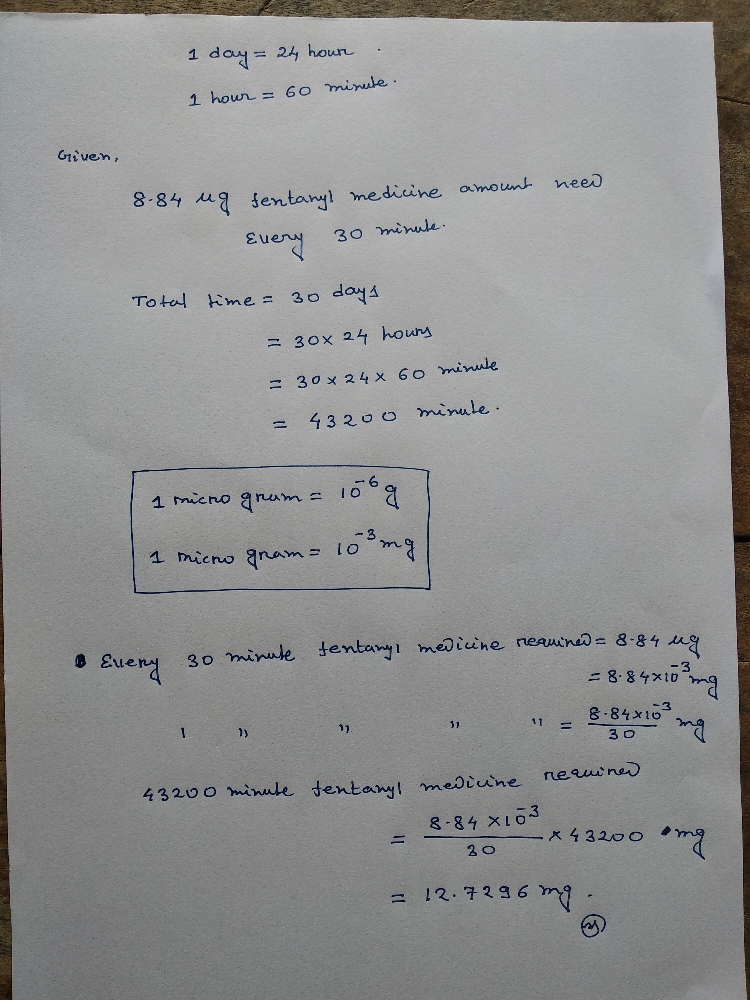 1 day = 24 hour .
1 hour = 60 minute.
Given,
8.84 μg fentanyl medicine amount need
Every 30 minute.
Total time = 30 days
= 30 × 24 hours
= 30 × 24 × 60 minute
= 43200 minute.
1 micro gram = 10⁻⁶ g
1 micro gram = 10⁻³ mg
Every 30 minute fentanyl medicine required = 8.84 μg
= 8.84 × 10⁻³ mg
1 " " " " = 8.84 × 10⁻³ / 30 mg
43200 minute fentanyl medicine required
= 8.84 × 10⁻³ / 30 × 43200 mg
= 12.7296 mg .